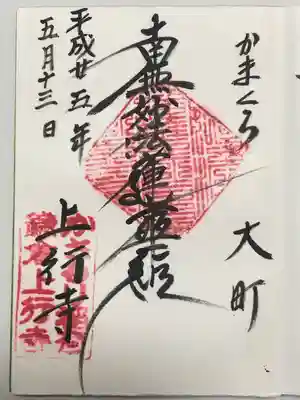 かまくら 大町
南無妙法蓮華経
上行寺
平成廿五年
五月十三日